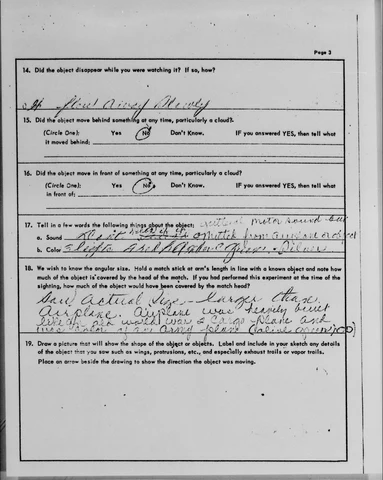 Page 3
14. Did the object disappear while you were watching it? If so, how?
float away slowly
15. Did the object move behind something at any time, particularly a cloud?
(Circle One): Yes No Don't Know. IF you answered YES, then tell what
it moved behind:
16. Did the object move in front of something at any time, particularly a cloud?
(Circle One): Yes No Don't Know. IF you answered YES, then tell what
in front of:
17. Tell in a few words the following things about the object:
motor sound but
a. Sound from airplane
b. Color 3 lights Red Green - Silver
18. We wish to know the angular size. Hold a match stick at arm's length in line with a known object and note how
much of the object is covered by the head of the match. If you had performed this experiment at the time of the
sighting, how much of the object would have been covered by the match head?
Saw actual size - Larger than
Airplane. Airplane was heavily built
like an old world war 2 Cargo plane and
was color of an army plane (olive green)
19. Draw a picture that will show the shape of the object or objects. Label and include in your sketch any details
of the object that you saw such as wings, protrusions, etc., and especially exhaust trails or vapor trails.
Place an arrow beside the drawing to show the direction the object was moving.